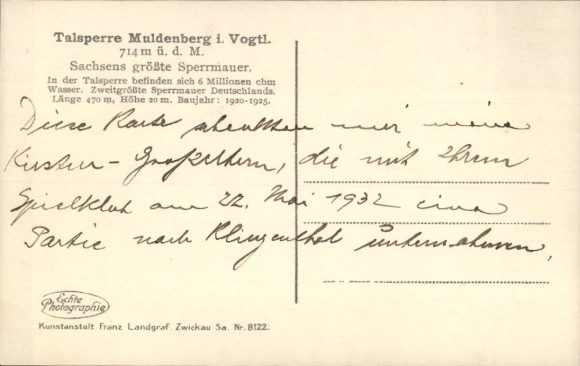 Talsperre Muldenberg i. Vogtl.
714 m ü. d. M.
Sachsens größte Sperrmauer.
In der Talsperre befinden sich 6 Millionen cbm
Wasser. Zweitgrößte Sperrmauer Deutschlands.
Länge 470 m, Höhe 20 m. Baujahr: 1920-1925.
Diese Karte schenkten mir meine
Großeltern, die mit Ihrem
Spielklub am 22. Mai 1932 eine
Partie nach Klingenthal unternahmen.
Echte
Photographie
Kunstanstalt Franz Landgraf. Zwickau Sa. Nr. 8122.